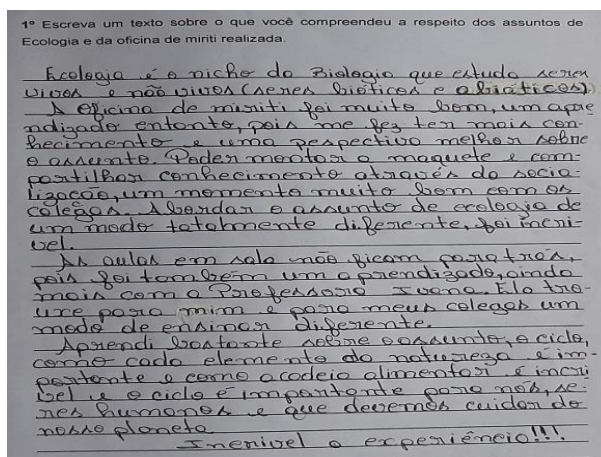 1º Escreva um texto sobre o que você compreendeu a respeito dos assuntos de
Ecologia e da oficina de miriti realizada.
Ecologia é o nicho da Biologia que estuda seres
vivos e não vivos (seres bióticos e abióticos).
A oficina de miriti foi muito bom, um apre
ndizado entanto, pois me fez ter mais con-
hecimento e uma perspectiva melhor sobre
o assunto. Poder montar a maquete e com-
partilhar conhecimento através da socia-
lização, um momento muito bom com os
colegas. Abordar o assunto de ecologia de
um modo totalmente diferente, foi incri-
vel.
As aulas em sala não ficam para trás,
pois foi também um aprendizado, ainda
mais com a Professora Ivana. Ela tro-
uxe para mim e para meus colegas um
modo de ensinar diferente.
Aprendi bastante sobre o assunto, o ciclo,
como cada elemento da natureza é im-
portante e como a cadeia alimentar é incri
vel e o ciclo é importante para nós, se-
res humanos e que devemos cuidar do
nosso planeta
Incrivel a experiência!!!.